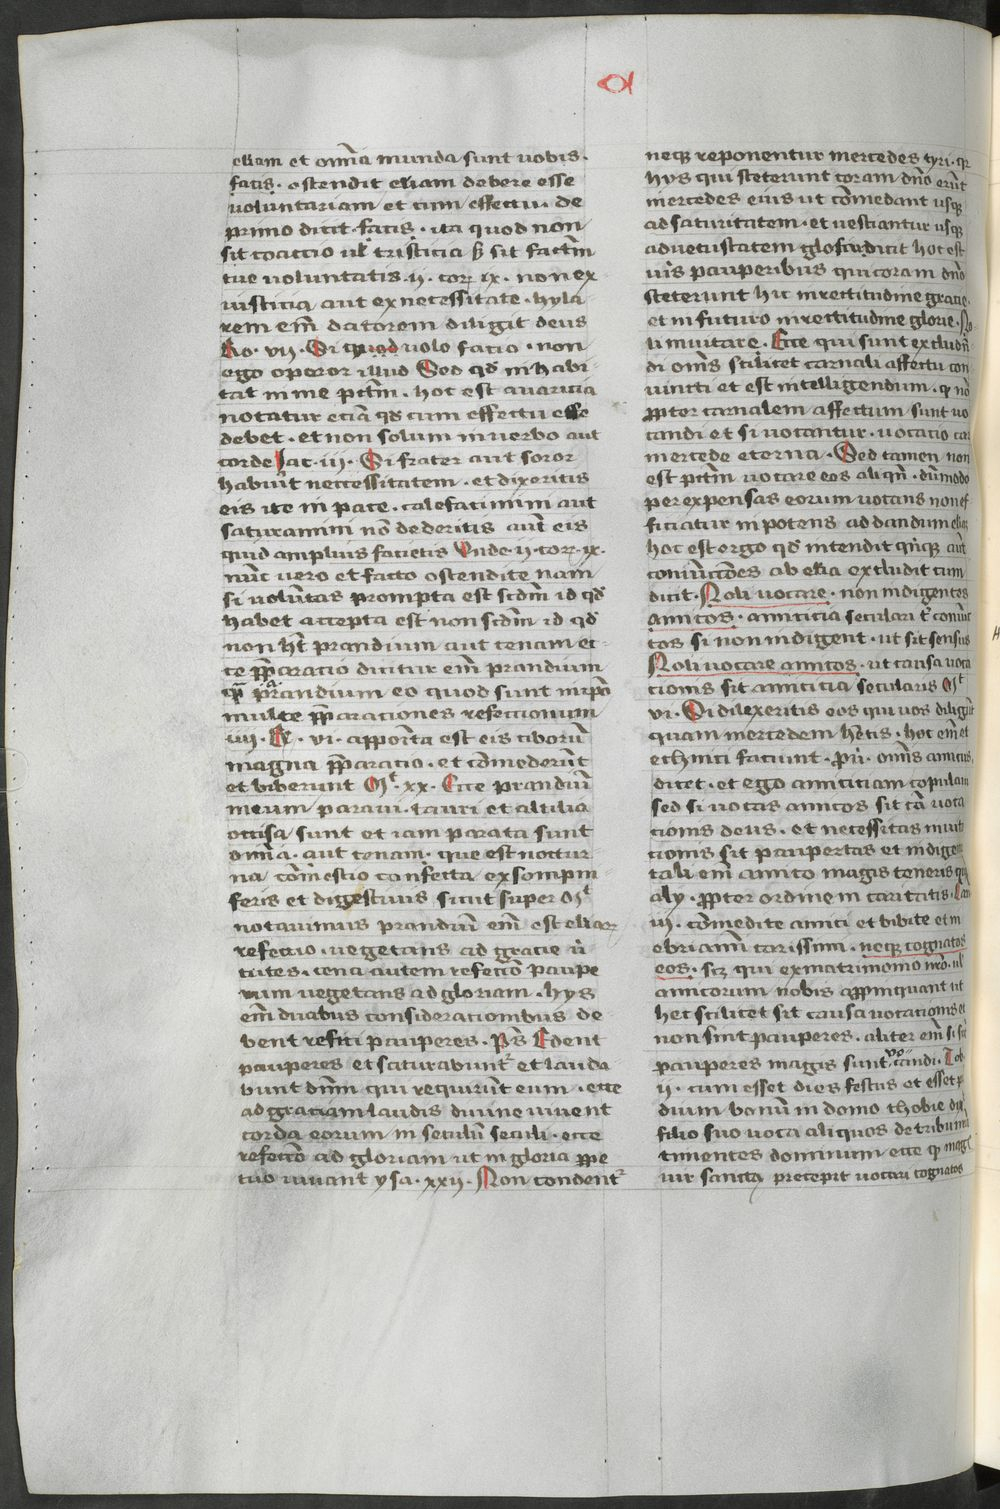 eliam et om̄ia munda sunt uobis ·
facis · ostendit eliam debere esse
uoluntariam et cum effectu · de
primo dicit · facis · ita quod non
sit coactio ul̓ tristicia sꝫ sit factū
tue uoluntatis · ii · cor̄ ix · non ex
tristicia aut ex necessitate · hyla
rem em̄ datorem diligit deus
Ro · vii · Si quod uolo facio · non
ego operor illud Sed qd̓ inhabi
tat in me pctm̄ · hoc est auaricia
notatur ecia qd̓ cum effectu esse
debet · et non solum in uerbo aut
corde Jac · iii · Si frater aut soror
habuīt neccessitatem · et dixeritis
eis ite in pace · calefacimini aut
saturamini nō dederitis aut̄ eis
quid amplius facietis Vnde · ii · cor̄ · ix ·
nūc uero et facto ostendite nam
si uolūtas prompta est scdm̄ id qd̓
habet accepta est non scdm̄ id qd̓
non hꝫ prandium aut cenam ec
ce ꝑparacio dicitur em̄ prandium
qͣ parandium eo quod sunt in ip̄o
multe ꝑparaciones refectionum
iiii · R · vi · appoīta est eis ciborū
magna ꝑparacio · et cōmederūt
et biberunt Mͭ · xx · Ecce prandiū
meum paraui · tauri et altilia
occisa sunt et iam parata sunt
om̄ia · aut cenam · que est noctur
na cōmestio confecta ex sompni
feris et digestiuis sicut super Mͭ
notauimus prandiū em̄ est eliaꝝ
refectio · uegetans ad gracie ūi
tutes · cena autem refectō paupe
rum uegetans ad gloriam · hys
em̄ duabus consideracionibus de
bent refici pauperes · Ps̄ Edent
pauperes et saturabunt᷑ et lauda
bunt dnm̄ qui requirūt eum · ecce
ad graciam laudis diuine uiuent
corda eorum in seculū seculi · ecce
refectō ad gloriam ut in gloria ꝑpe
tuo uiuant ysa · xxii · Non condent᷑
neqꝫ reponentur mercedes tyri · qr
hys qui steterunt coram dn̄o erūt
mercedes eius ut cōmedant usqꝫ
ad saturitatem · et uestiantur usqꝫ
ad uetustatem glosa dicit hoc est
ūis pauperibus qui coram dn̄o
steterunt hic in rectitudine gracie
et in futuro in rectitudine glorie · No
li inuitare · Ecce qui sunt excludē
di om̄s scilicet carnali affectu con
iuncti et est intelligendum · qͥ nō
ꝓpter carnalem affectum sunt uo
candi et si uocantur · uocacio car
mercede eterna · Sed tamen non
est pctm̄ uocare eos aliqn̄ · dūmodo
per expensas eorum uocans non ef
ficiatur inpotens ad dandum elias
hoc est ergo qd̓ intendit qn̄qꝫ aut̄
coniūctiōes ab elia excludit cum
dicit · Noli uocare · non indigentes
amicos · amicicia seculari t̓ coniūc
tos si non indigent · ut sit sensus
Noli uocare amicos · ut causa uoca
cionis sit amicicia secularis Mͭ
vi · Si dilexeritis eos qui uos diligūt
quam mercedem hētis · hoc em̄ et
ethnici faciunt · pū · om̄is amicus
dicet · et ego amicitiam copulaui
sed si uocas amicos sit cā uoca
cionis deus · et necessitas inuita
cionis sit paupertas et indigen
tali em̄ amico magis teneris qͣ
aly · ꝓpter ordinem caritatis · Can
iii · cōmedite amici et bibite et in
ebriamī carissimi · neqꝫ cognatos
eos · scꝫ qui ex matrimonio nr̄o · ul̓
amicorum nobis appinquant ut
hec scilicet sit causa uocacionis et
non sint pauperes · aliter em̄ si sint
pauperes magis sunt uocandi · Tob
ii · cum esset dies festus et esset p
dium bonū in domo thobie dix
filio suo uoca aliquos de tribu nr̄a
timentes dominum ecce qͥ magͥ
uir sanctꝰ precepit uocari cognatos